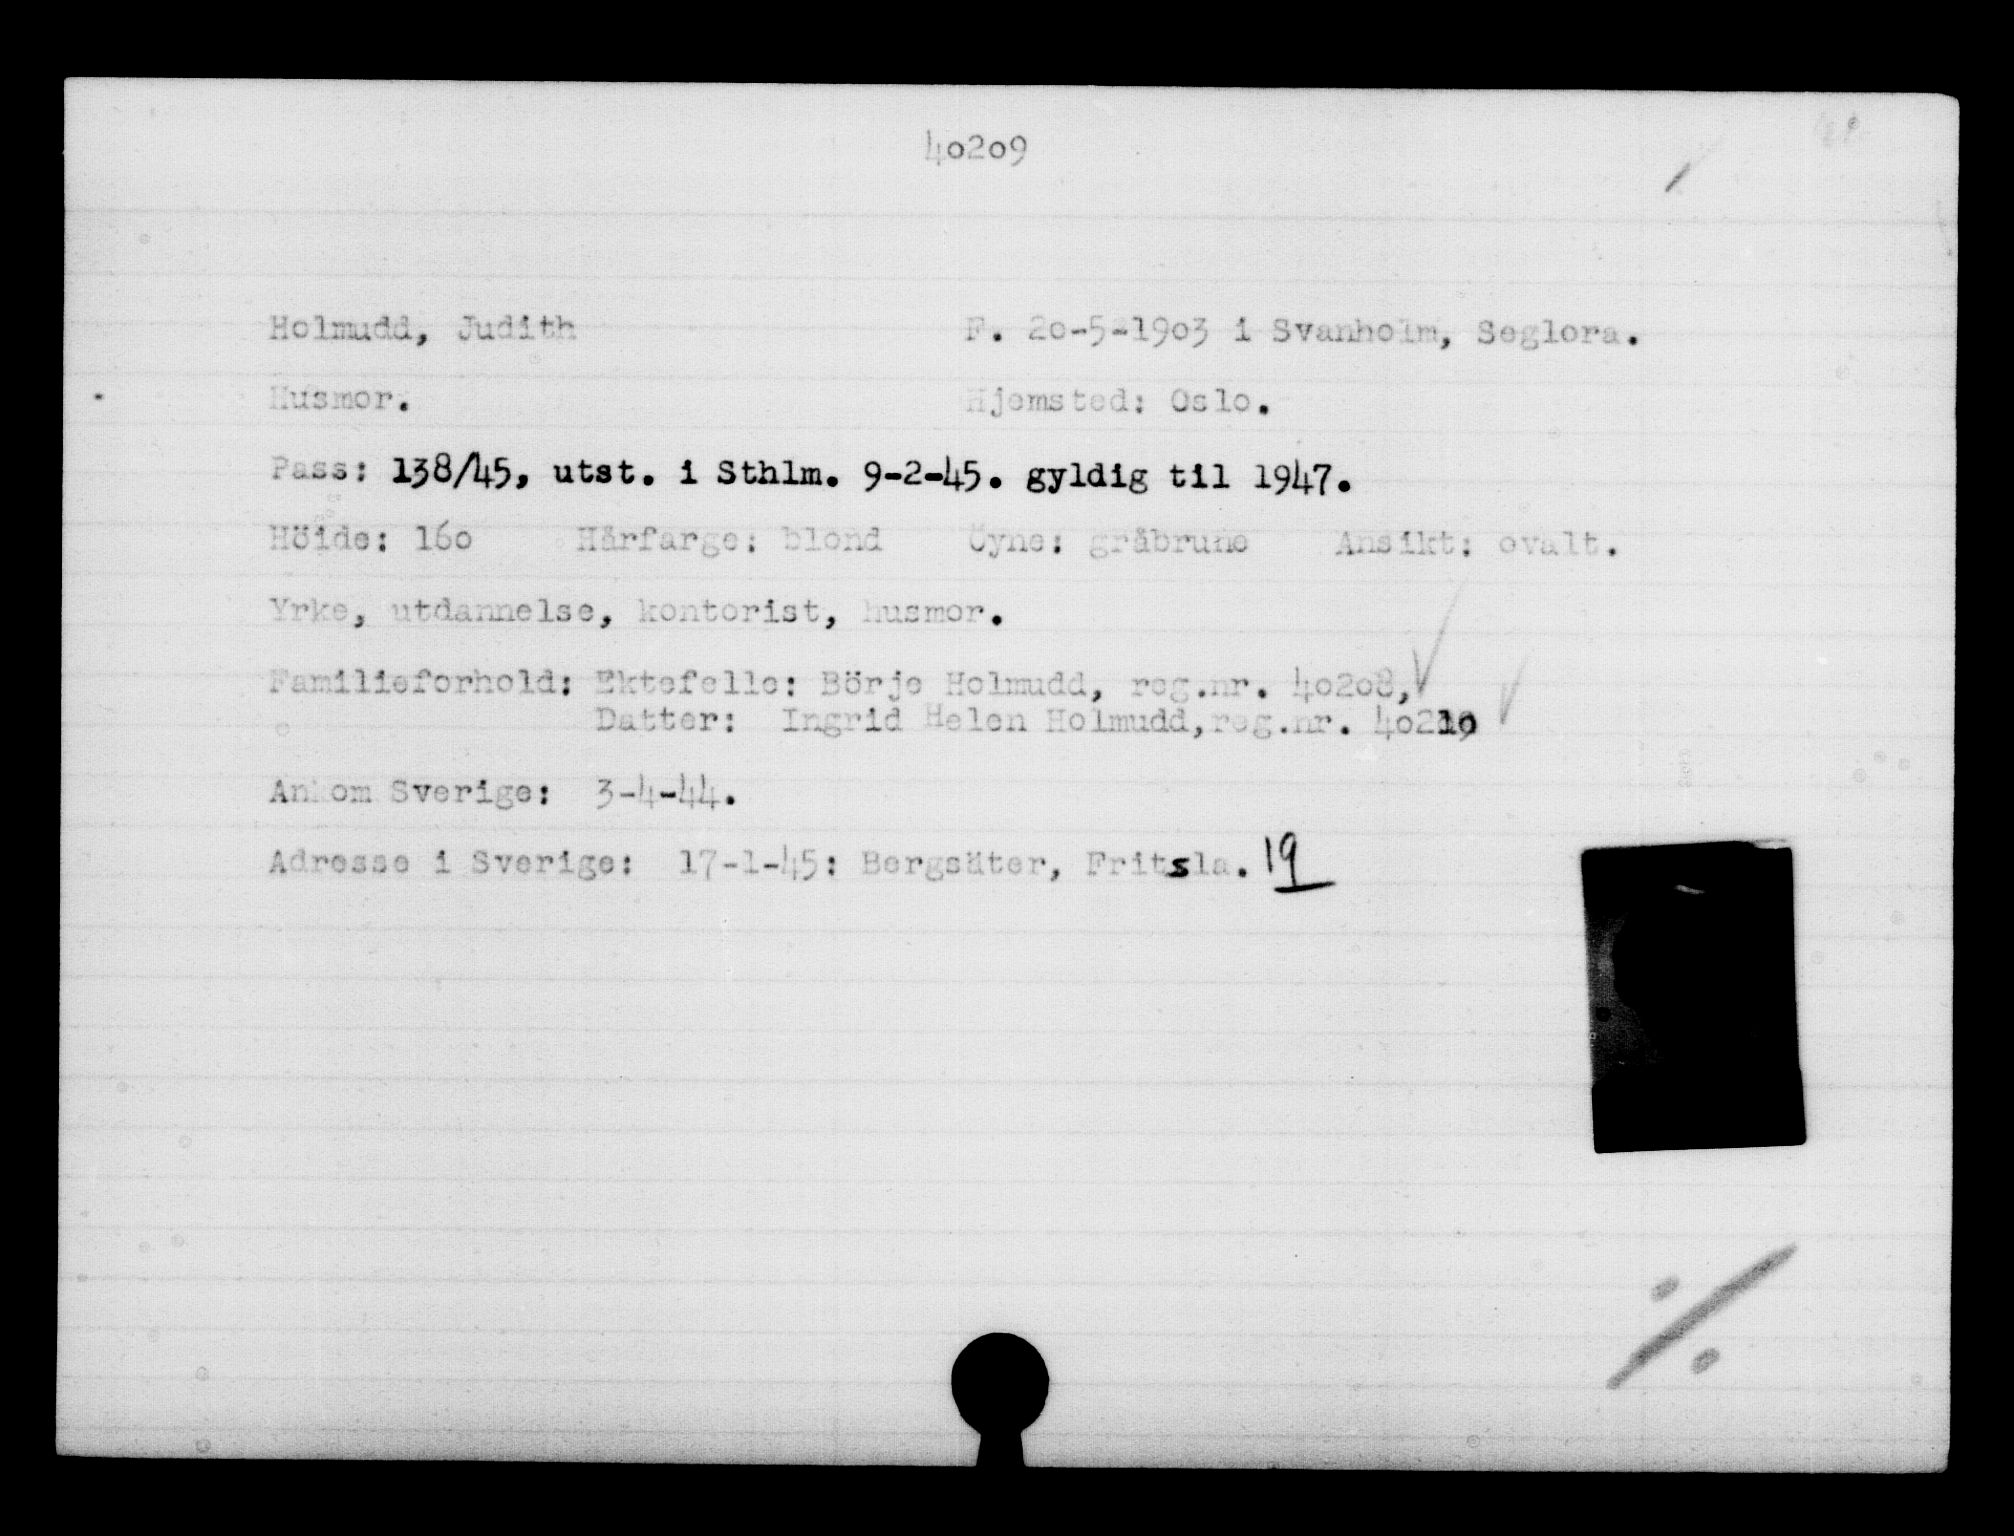 40209
Holmudd, Judith F. 20-5-1903 i Svanholm, Seglora.
Husmor. Hjemsted: Oslo.
Pass: 138/45, utst. i Sthlm. 9-2-45. gyldig til 1947.
Höide: 160 Hårfarge: blond Öyne: gråbrune Ansikt: ovalt.
Yrke, utdannelse, kontorist, husmor.
Familieforhold: Ektefelle: Börje Holmudd, reg.nr. 40208,
Datter: Ingrid Helen Holmudd, reg.nr. 40210
Ankom Sverige: 3-4-44.
Adresse i Sverige: 17-1-45: Bergsäter, Fritsla. 19